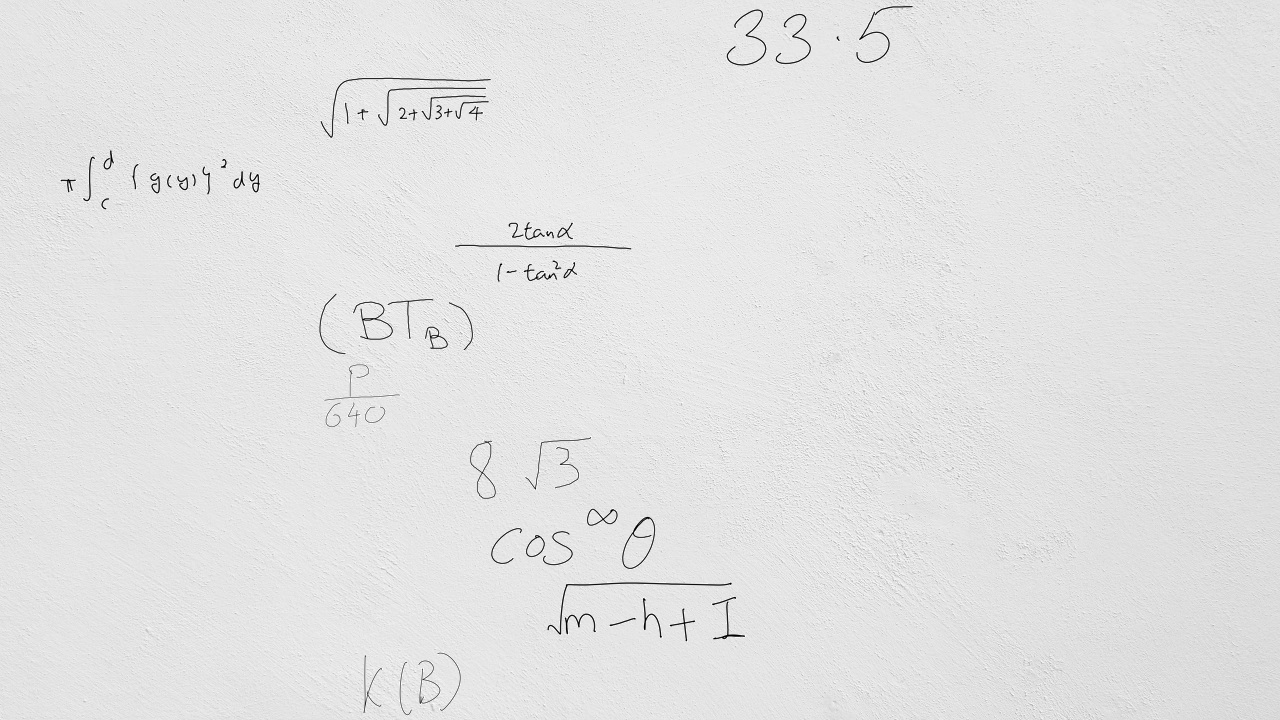 33 \cdot 5
\sqrt{1+\sqrt{2+\sqrt{3+\sqrt{4}}}}
\pi\int_{c}^{d}\{g(y)\}^{2}dy
\frac{2\tan\alpha}{1-\tan^{2}\alpha}
(BT_{B})
\frac{P}{640}
8\sqrt{3}
\cos^{\infty}\theta
\sqrt{m-h+I}
k(B)